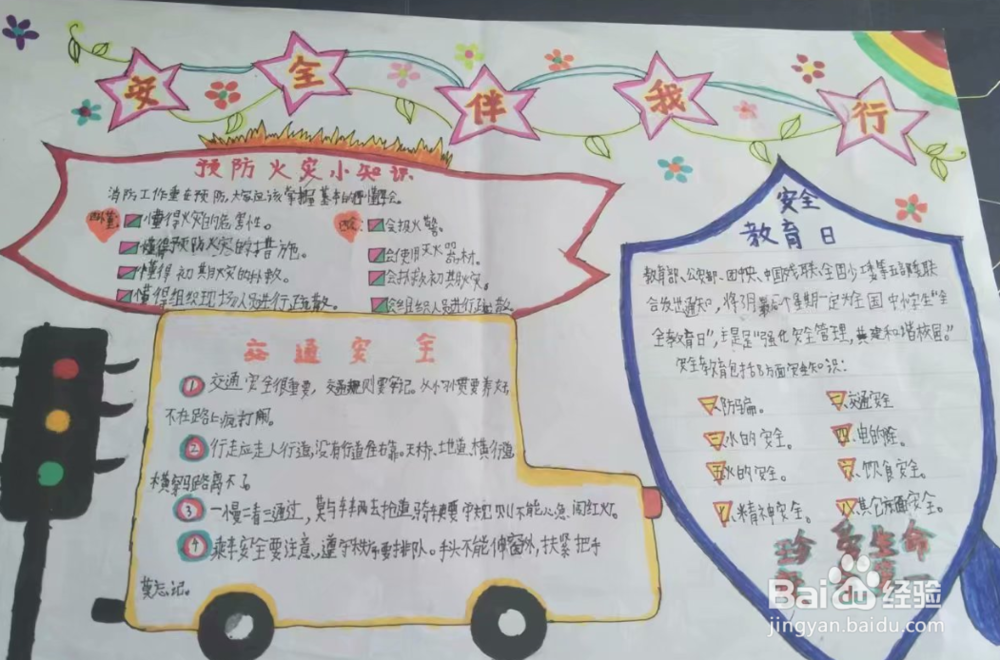 安全伴我行
预防火灾小知识
消防工作重在预防,大家应该掌握基本的四懂四会。
四懂:
懂得火灾的危害性。
懂得预防火灾的措施。
懂得初期火灾的扑救。
懂得组织现场人员进行疏散。
四会:
会报火警。
会使用灭火器材。
会扑救初期火灾。
会组织人员进行疏散
交通安全
1 交通安全很重要,交通规则要牢记。从小习惯要养成,
不在路上疯打闹。
2 行走应走人行道,没有行道往右靠。天桥、地道、横行道
横穿马路离不了。
3 一慢二看三通过,莫与车辆去抢道。骑车更要守规则,不能心急闯红灯。
4 乘车安全要注意,遵守秩序要排队。手头不能伸窗外,扶紧把手
莫忘记。
安全
教育日
教育部、公安部、团中央、中国残联、全国少工委等五部委联
合发出通知,将3月最后一个星期一定为全国中小学生“全
全教育日”,主题是“强化安全管理,共建和谐校园。”
安全教育包括8方面安全知识:
一防骗。
二交通安全
三水的安全。
四电的
五火的安全。
六饮食安全。
七精神安全。
八其它方面安全。
珍爱生命
Baidu经验
jingyan.baidu.com